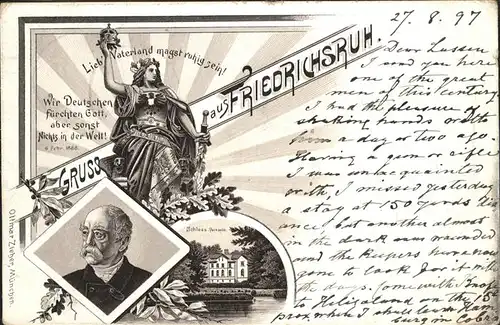 27. 8. 97
Lieb' Vaterland magst ruhig sein!
Wir Deutschen
fürchten Gott,
aber sonst
Nichts in der Welt!
6 Febr. 1888.
GRUSS aus FRIEDRICHSRUH.
Schloss
Ottmar Zieher, München
Dear
I send you here
one of the great
men of this century
I had the pleasure of
shaking hands with
from a day or two ago
Having a gun or rifle
I was unacquainted
with, I missed yesterday
a stag at 150 yards
but another almost
in the dark was wounded
and the keepers
gone to look for it
days. Come with
to Heligoland on the 15
prox. when I